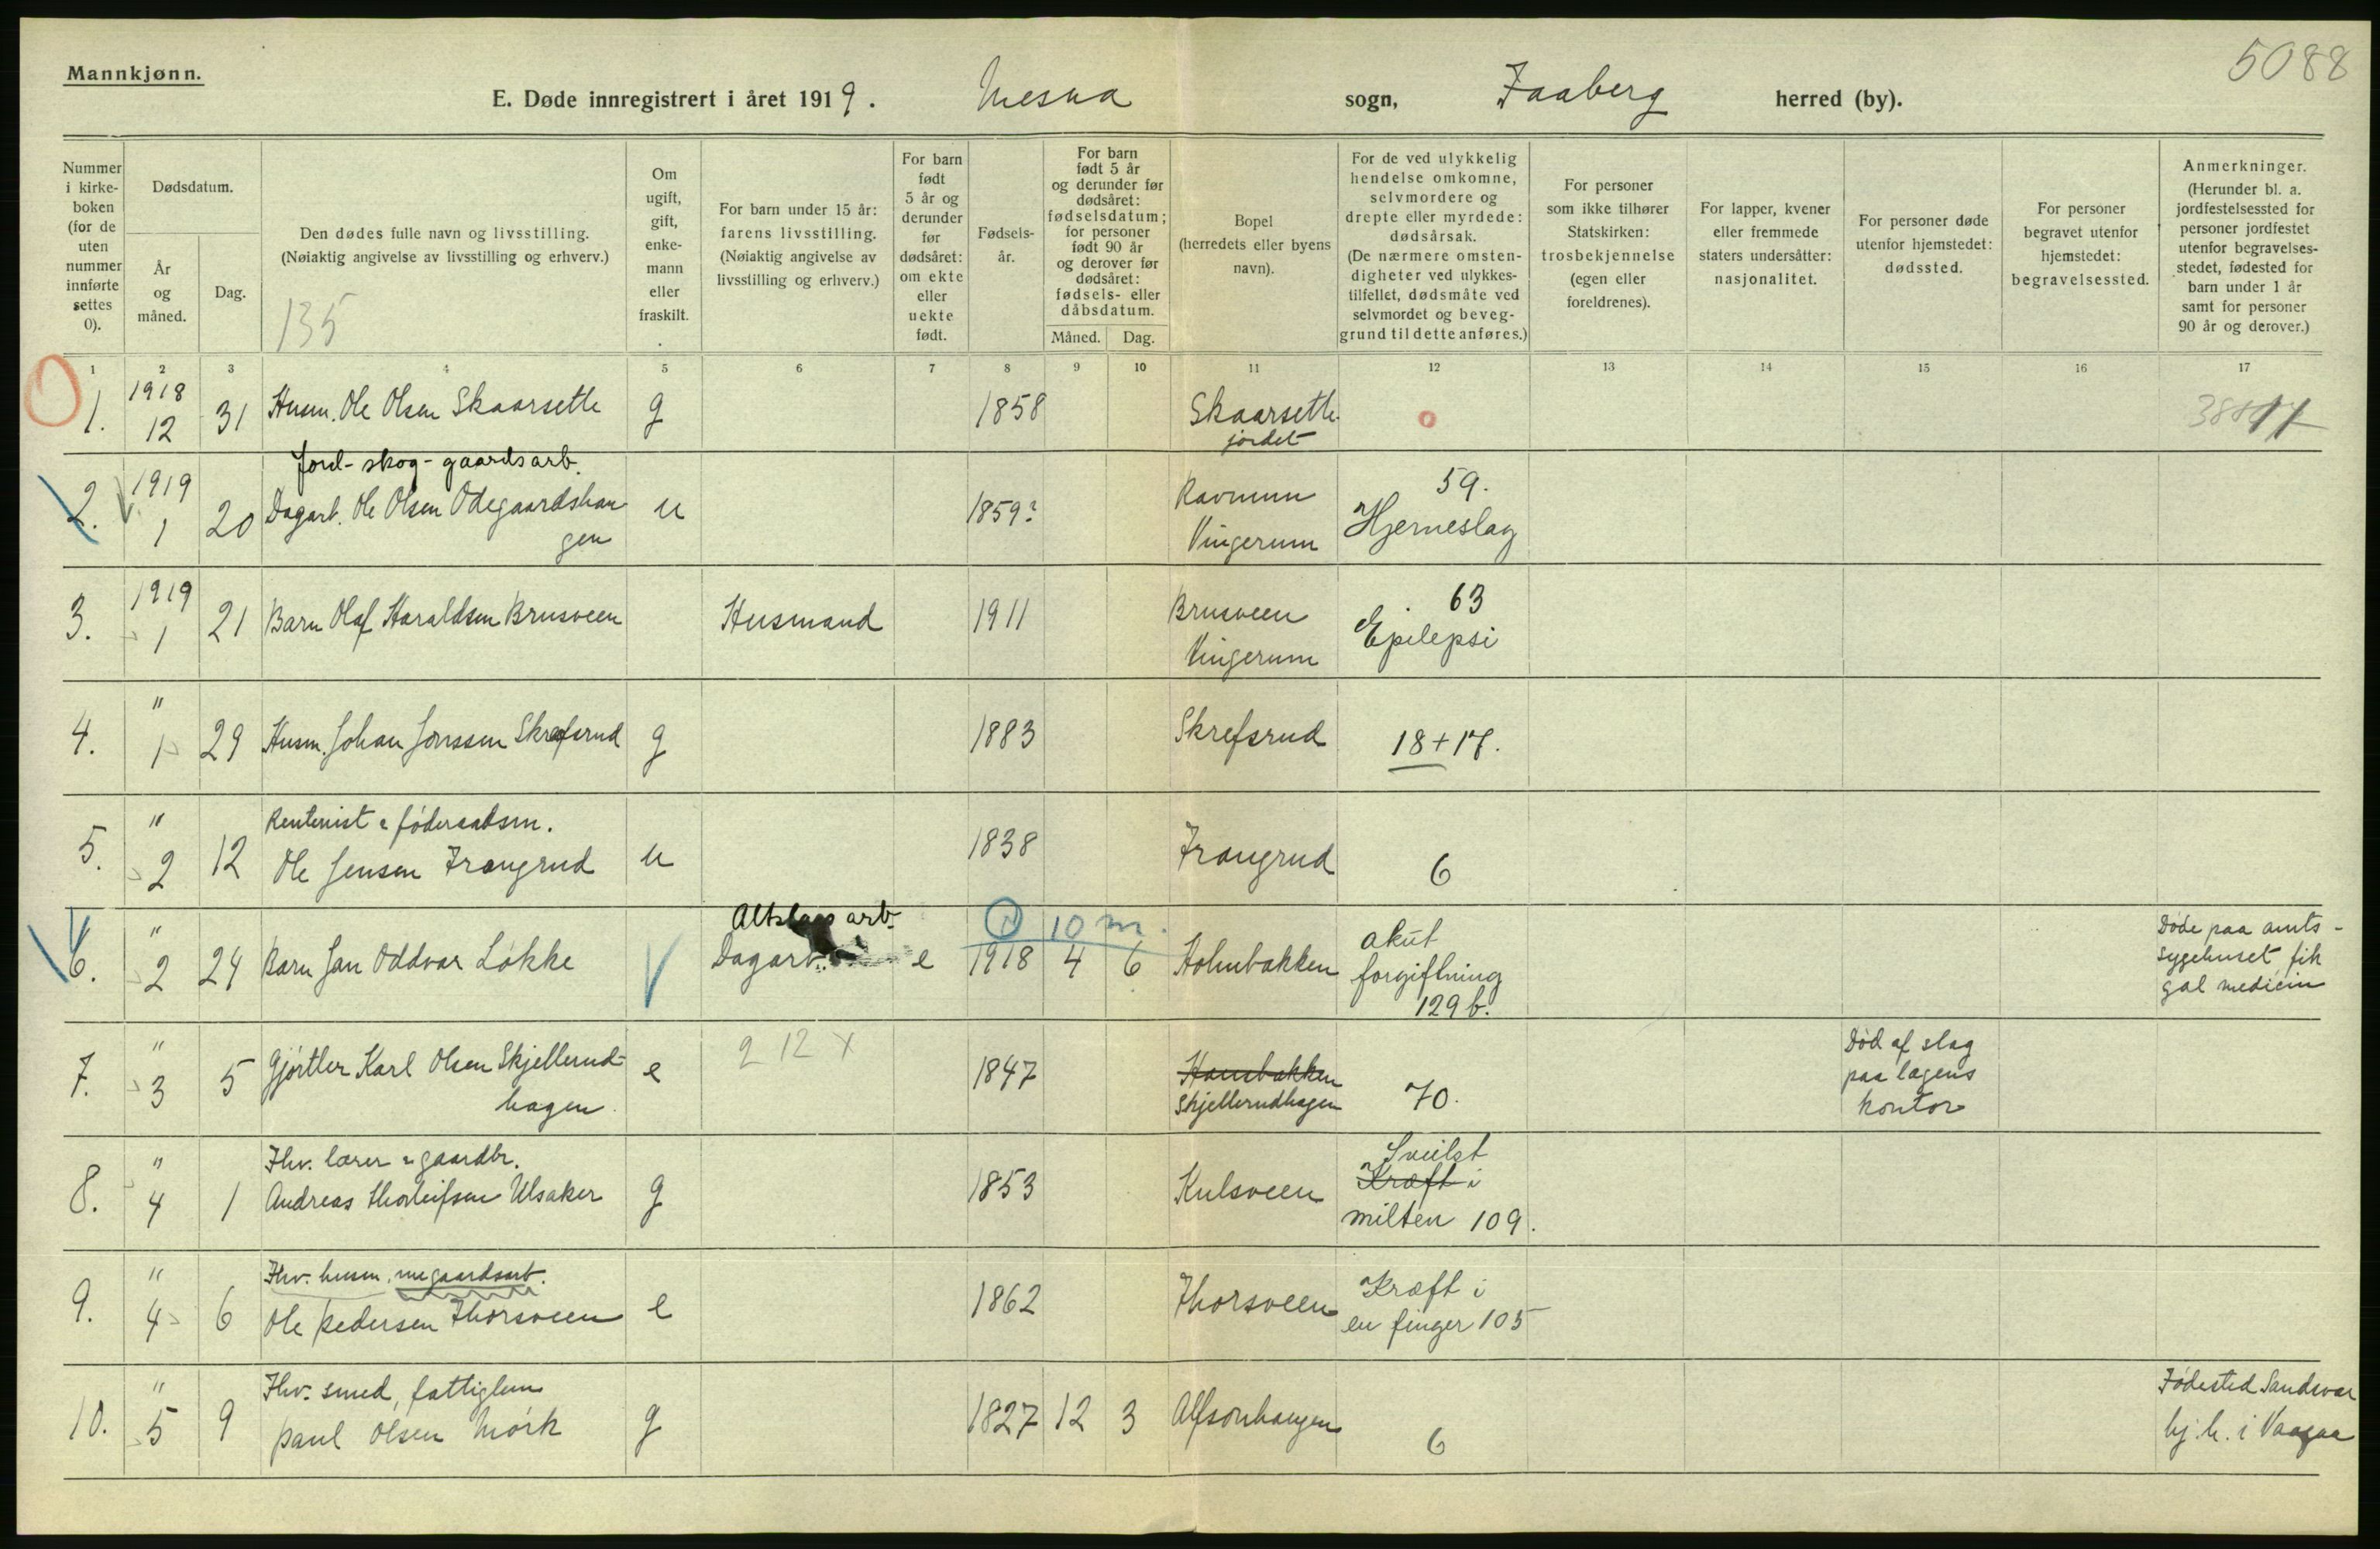 5088
Mannkjønn.
E. Døde innregistrert i året 1919. Mesna sogn, Faaberg herred (by).
Nummer
i kirke-
boken
(for de
uten
nummer
innførte
settes
0).
Dødsdatum.
År
og
måned.
Dag.
Den dødes fulle navn og livsstilling.
(Nøiaktig angivelse av livsstilling og erhverv.)
135
Om
ugift,
gift,
enke-
mann
eller
fraskilt.
For barn under 15 år:
farens livsstilling.
(Nøiaktig angivelse av
livsstilling og erhverv.)
For barn
født
5 år og
derunder
før
dødsåret:
om ekte
eller
uekte
født.
Fødsels-
år.
For barn
født 5 år
og derunder før
dødsåret:
fødselsdatum;
for personer
født 90 år
og derover før
dødsåret:
fødsels- eller
dåbsdatum.
Måned. Dag.
Bopel
(herredets eller byens
navn).
For de ved ulykkelig
hendelse omkomne,
selvmordere og
drepte eller myrdede:
dødsårsak.
(De nærmere omsten-
digheter ved ulykkes-
tilfellet, dødsmåte ved
selvmordet og beveg-
grund til dette anføres.)
For personer
som ikke tilhører
Statskirken:
trosbekjennelse
(egen eller
foreldrenes).
For lapper, kvener
eller fremmede
staters undersåtter:
nasjonalitet.
For personer døde
utenfor hjemstedet:
dødssted.
For personer
begravet utenfor
hjemstedet:
begravelsessted.
Anmerkninger.
(Herunder bl. a.
jordfestelsessted for
personer jordfestet
utenfor begravelses-
stedet, fødested for
barn under 1 år
samt for personer
90 år og derover.)
1 2 3 4 5 6 7 8 9 10 11 12 13 14 15 16 17
1. 1918
12 31 Husm. Ole Olsen Skaarsette g 1858 Skaarsette
jordet
2. 1919
1 20 Jord-skog-gaardsarb.
Dagarb. Ole Olsen Ødegaardshau
gen u 1859? Ravnum
Vingerum 59.
Hjerneslag
3. 1919
1 21 Barn Olaf Haraldsen Brusveen Husmand 1911 Brusveen
Vingerum 63
Epilepsi
4. "
1 29 Husm. Johan Jonssen Skrefsrud g 1883 Skrefsrud 18+17.
5. "
2 12 Rentenist & föderaadsm.
Ole Jensen Frangrud u 1838 Frangrud 6
6. "
2 24 Barn Jan Oddvar Løkke arb.
Dagarb. e 10 m.
1918 4 6 Holmbakken akut
forgiftning
129 b. Døde paa amts-
sygehuset fik
gal medicin
7. "
3 5 Gjørtler Karl Olsen Skjellerud-
hagen e 2 12 x 1847 Hansbakken
Skjellerudhagen 70. Død af slag
paa lægens
kontor
8. "
4 1 Fhv. lærer & gaardbr.
Andreas Thorleifsen Ulsaker g 1853 Kulsveen Svulst
Kræft i
milten 109.
9. "
4 6 Fhv. husm. megaardsarb.
Ole Pedersen Thorsveen e 1862 Thorsveen Kræft i
en finger 105
10. "
5 9 Fhv. smed, fattiglem
Paul Olsen Mørk g 1827 12 3 Alfsonhaugen 6 Fødested Sandsvær
hj. h. i Vaagaa